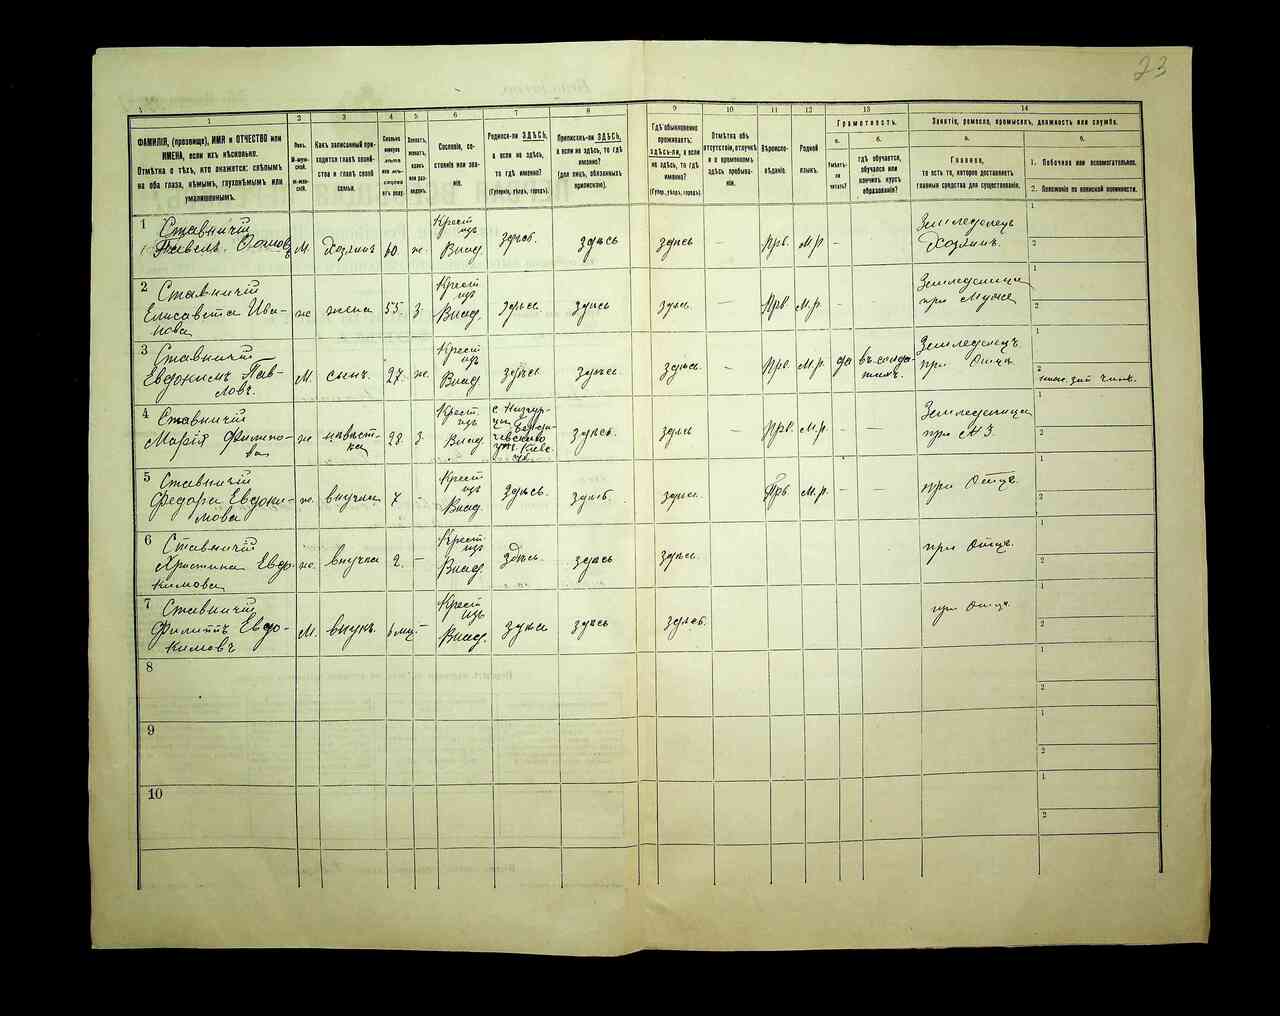 23
1 2 3 4 5 6 7 8 9 10 11 12 13 14
ФАМИЛІЯ, (прозвище), ИМЯ и ОТЧЕСТВО или
ИМЕНА, если ихъ нѣсколько.
Отмѣтка о тѣхъ, кто окажется: слѣпымъ
на оба глаза, нѣмымъ, глухонѣмымъ или
умалишеннымъ.
Полъ.
М-мужской.
Ж-женскій.
Какъ записанный при-
ходится главѣ хозяй-
ства и главѣ своей
семьи.
Сколько
минуло
лѣтъ
или мѣ-
сяцевъ
отъ роду.
Холостъ,
женатъ,
вдовъ
или раз-
веденъ.
Сословіе, со-
стояніе или зва-
ніе.
Родился-ли ЗДѢСЬ,
а если не здѣсь,
то гдѣ именно?
(Губернія, уѣздъ, городъ).
Приписанъ-ли ЗДѢСЬ,
а если не здѣсь, то гдѣ
именно?
(для лицъ, обязанныхъ
припискою).
Гдѣ обыкновенно
проживаетъ:
здѣсь-ли, а если
не здѣсь, то гдѣ
именно?
(Губер., уѣздъ, городъ).
Отмѣтка объ
отсутствіи, отлучкѣ
и о временномъ
здѣсь пребыва-
ніи.
Вѣроиспо-
вѣданіе.
Родной
языкъ.
Грамотность.
а.
Умѣетъ-
ли
читать?
б.
гдѣ обучается,
обучался или
кончилъ курсъ
образованія?
Занятіе, ремесло, промыселъ, должность или служба.
а.
Главное,
то есть то, которое доставляетъ
главныя средства для существованія.
б.
1. Побочное или вспомогательное.
2. Положеніе по воинской повинности.
1 Ставничій
Павелъ М. Хозяинъ 60 ж. Крест изъ Влад. здѣсь. здѣсь здѣсь — Прв. М.р. — Земледѣлецъ Хозяинъ. 1 2
2 Ставничій
Елисавета Ива-
нова ж жена 55. З. Крест изъ Влад. здѣсь здѣсь здѣсь — Прв М.р. — Земледѣлица при Мужѣ 1 2
3 Ставничій
Евдокимъ Пав-
ловъ. М. сынъ. 27. ж. Крест изъ Влад. здѣсь здѣсь. здѣсь. — Прв. М.р да въ солда-
тахъ. Земледѣлецъ при Отцѣ 1 2
4 Ставничій
Марія ж невѣст-
ка 28. З. Крест. изъ Влад. здѣсь. здѣсь — Прв. М.р. — — Земледѣлица при М. 1 2
5 Ставничій
Федора Евдоки-
мова ж. внучка 7 - Крест изъ Влад. здѣсь. здѣсь. здѣсь. Прв. М.р. — при Отцѣ. 1 2
6 Ставничій
Христина Евдо-
кимова ж. внучка 2. — Крест изъ Влад. здѣсь. здѣсь здѣсь. при Отцѣ. 1 2
7 Ставничій
Филиппъ Евдо-
кимовъ М. внукъ. 6 мц. — Крест изъ Влад. здѣсь здѣсь здѣсь. при Отцѣ. 1 2
8 1 2
9 1 2
10 1 2